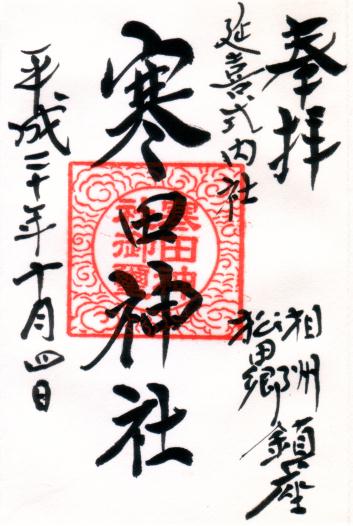 奉拝
延喜式内社
相州
松田郷
鎮座
寒田神社
平成二十年十月四日